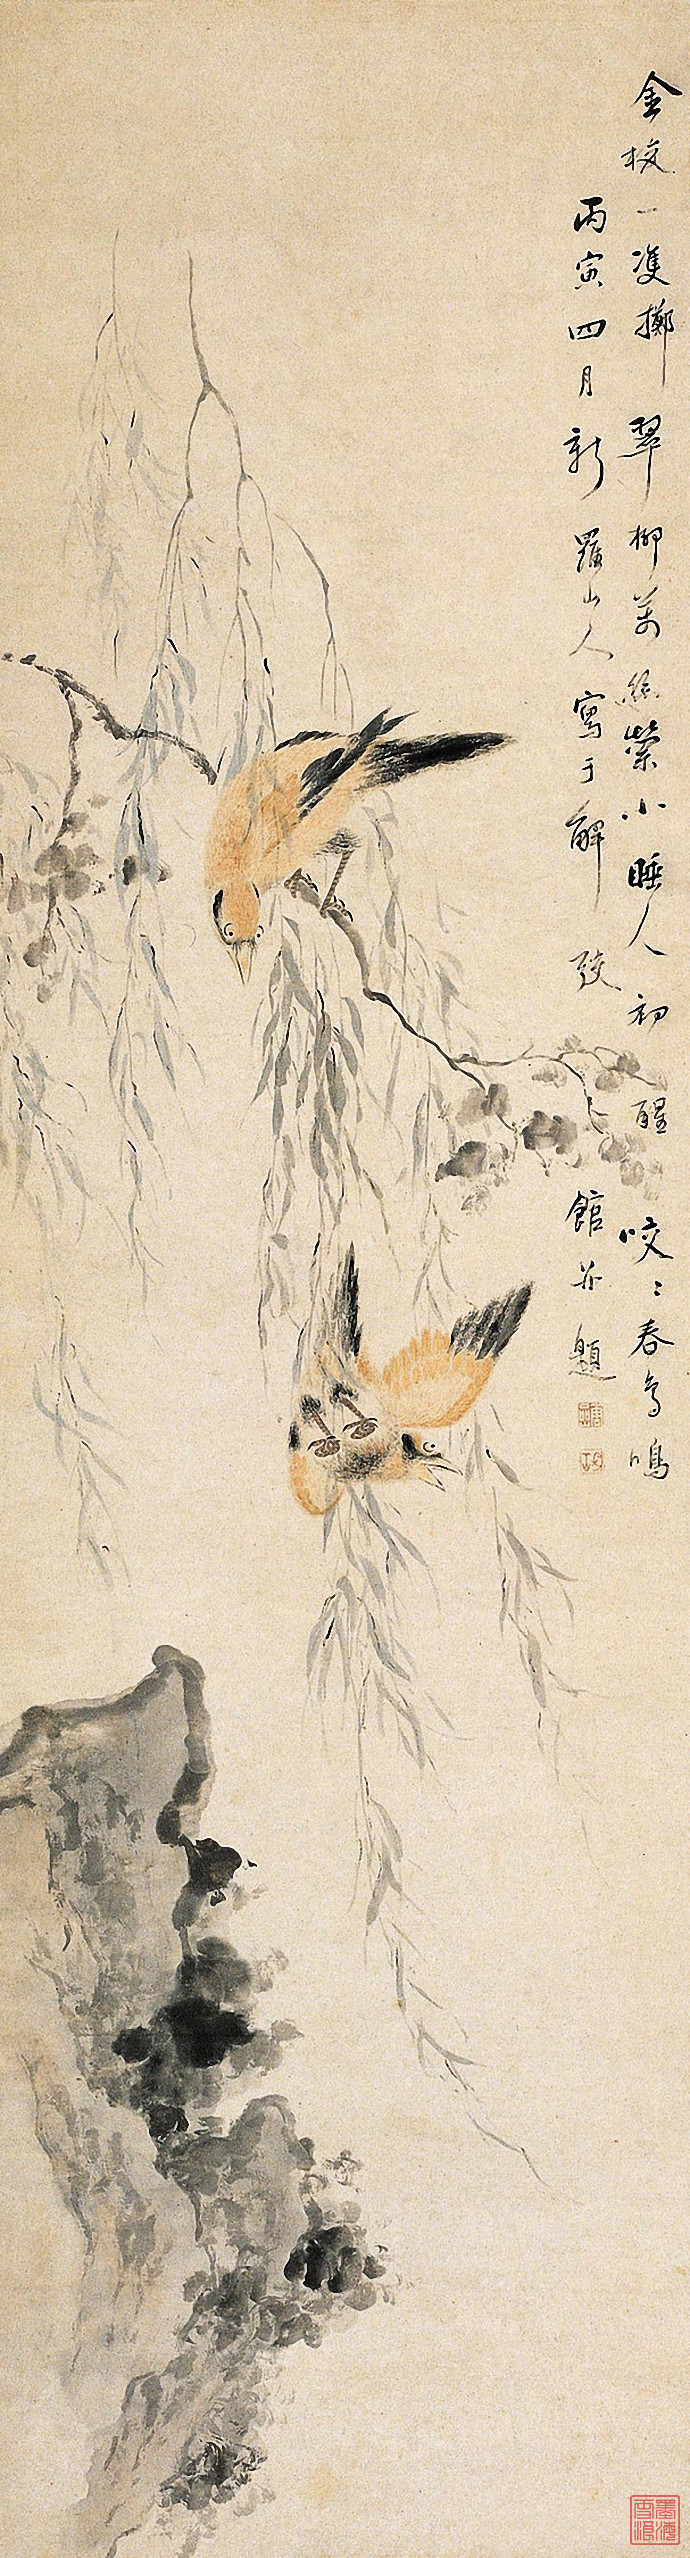 金梭一雙擲翠柳萬絲縈小睡人初醒咬〻春鳥鳴
丙寅四月新羅山人寫于解弢館并題